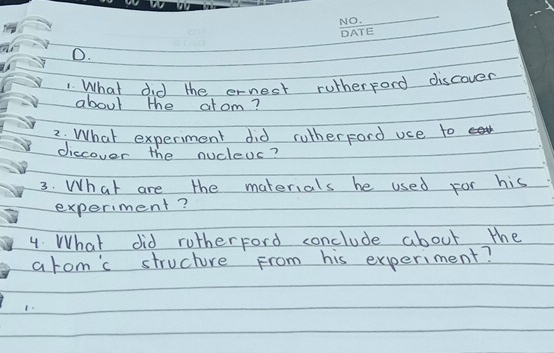 NO.
DATE
D.
1. What did the ernest rutherford discover
about the atom?
2. What experiment did rutherford use to
discover the nucleus?
3. What are the materials he used for his
experiment?
4. What did rutherford conclude about the
atom's structure from his experiment?
1.